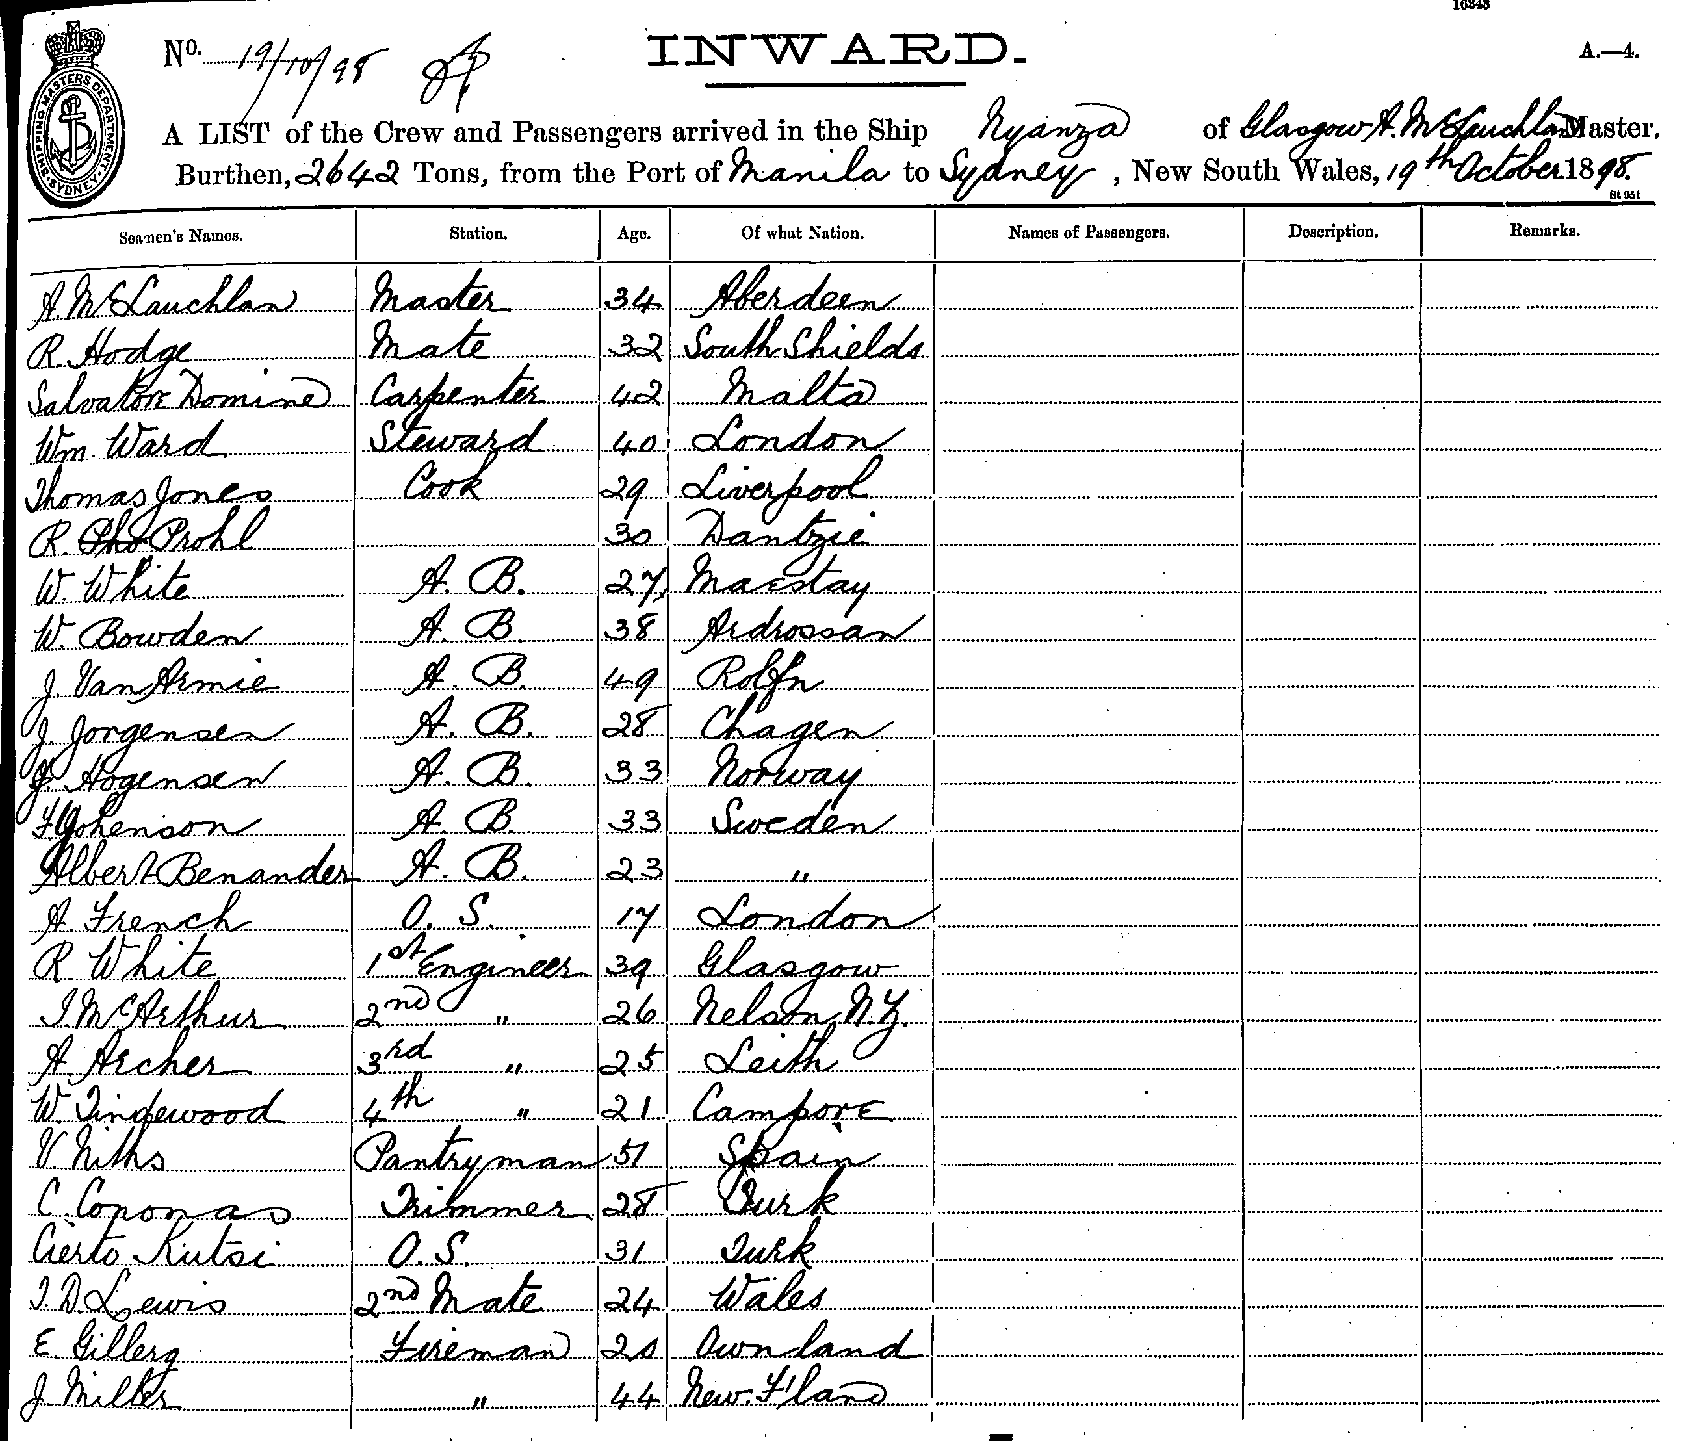 16343
No. 19/10/98
INWARD.
A.—4.
SHIPPING MASTERS DEPARTMENT SYDNEY
A LIST of the Crew and Passengers arrived in the Ship Nyanza of Glasgow A. McLauchlan Master.
Burthen, 2642 Tons, from the Port of Manila to Sydney, New South Wales, 19th October 1898.
St 951
Seamen's Names. Station. Age. Of what Nation. Names of Passengers. Description. Remarks.
A McLauchlan Master 34 Aberdeen
R. Hodge Mate 32 South Shields
Salvatore Domined Carpenter 42 Malta
Wm. Ward Steward 40 London
Thomas Jones Cook 29 Liverpool
R. Prohl 30 Dantzie
W. White A. B. 27 Macstay
W. Bowden A. B. 38 Ardrossan
J. Van Armie A. B. 49
J. Jorgensen A. B. 28 Chagen
J. Hogensen A. B. 33 Norway
Johenson A. B. 33 Sweden
Albert Benander A. B. 23 "
A French O. S. 17 London
R White 1st Engineer 39 Glasgow
J. McArthur 2nd " 26 Nelson N.Z.
A. Archer 3rd " 25 Leith
W. Tindewood 4th " 21 Campore
V Niths Pantryman 51 Spain
C. Coponas Trimmer 28 Turk
Cierto Kutsi O. S. 31 Turk
J. D. Lewis 2nd Mate 24 Wales
E. Gillerg Fireman 20 Ownland
J. Miller " 44 New. F'land